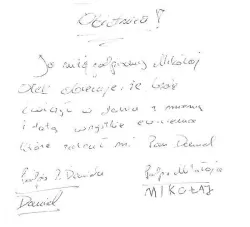 Obietnica!
Ja niżej podpisany Mikołaj
obiecuję, że będę
ćwiczył w domu z mamą
i tatą wszystkie ćwiczenia
które zadał mi Pan Dawid
Podpis P. Dawida
Podpis Mikołaja
Dawid
MIKOŁAJ